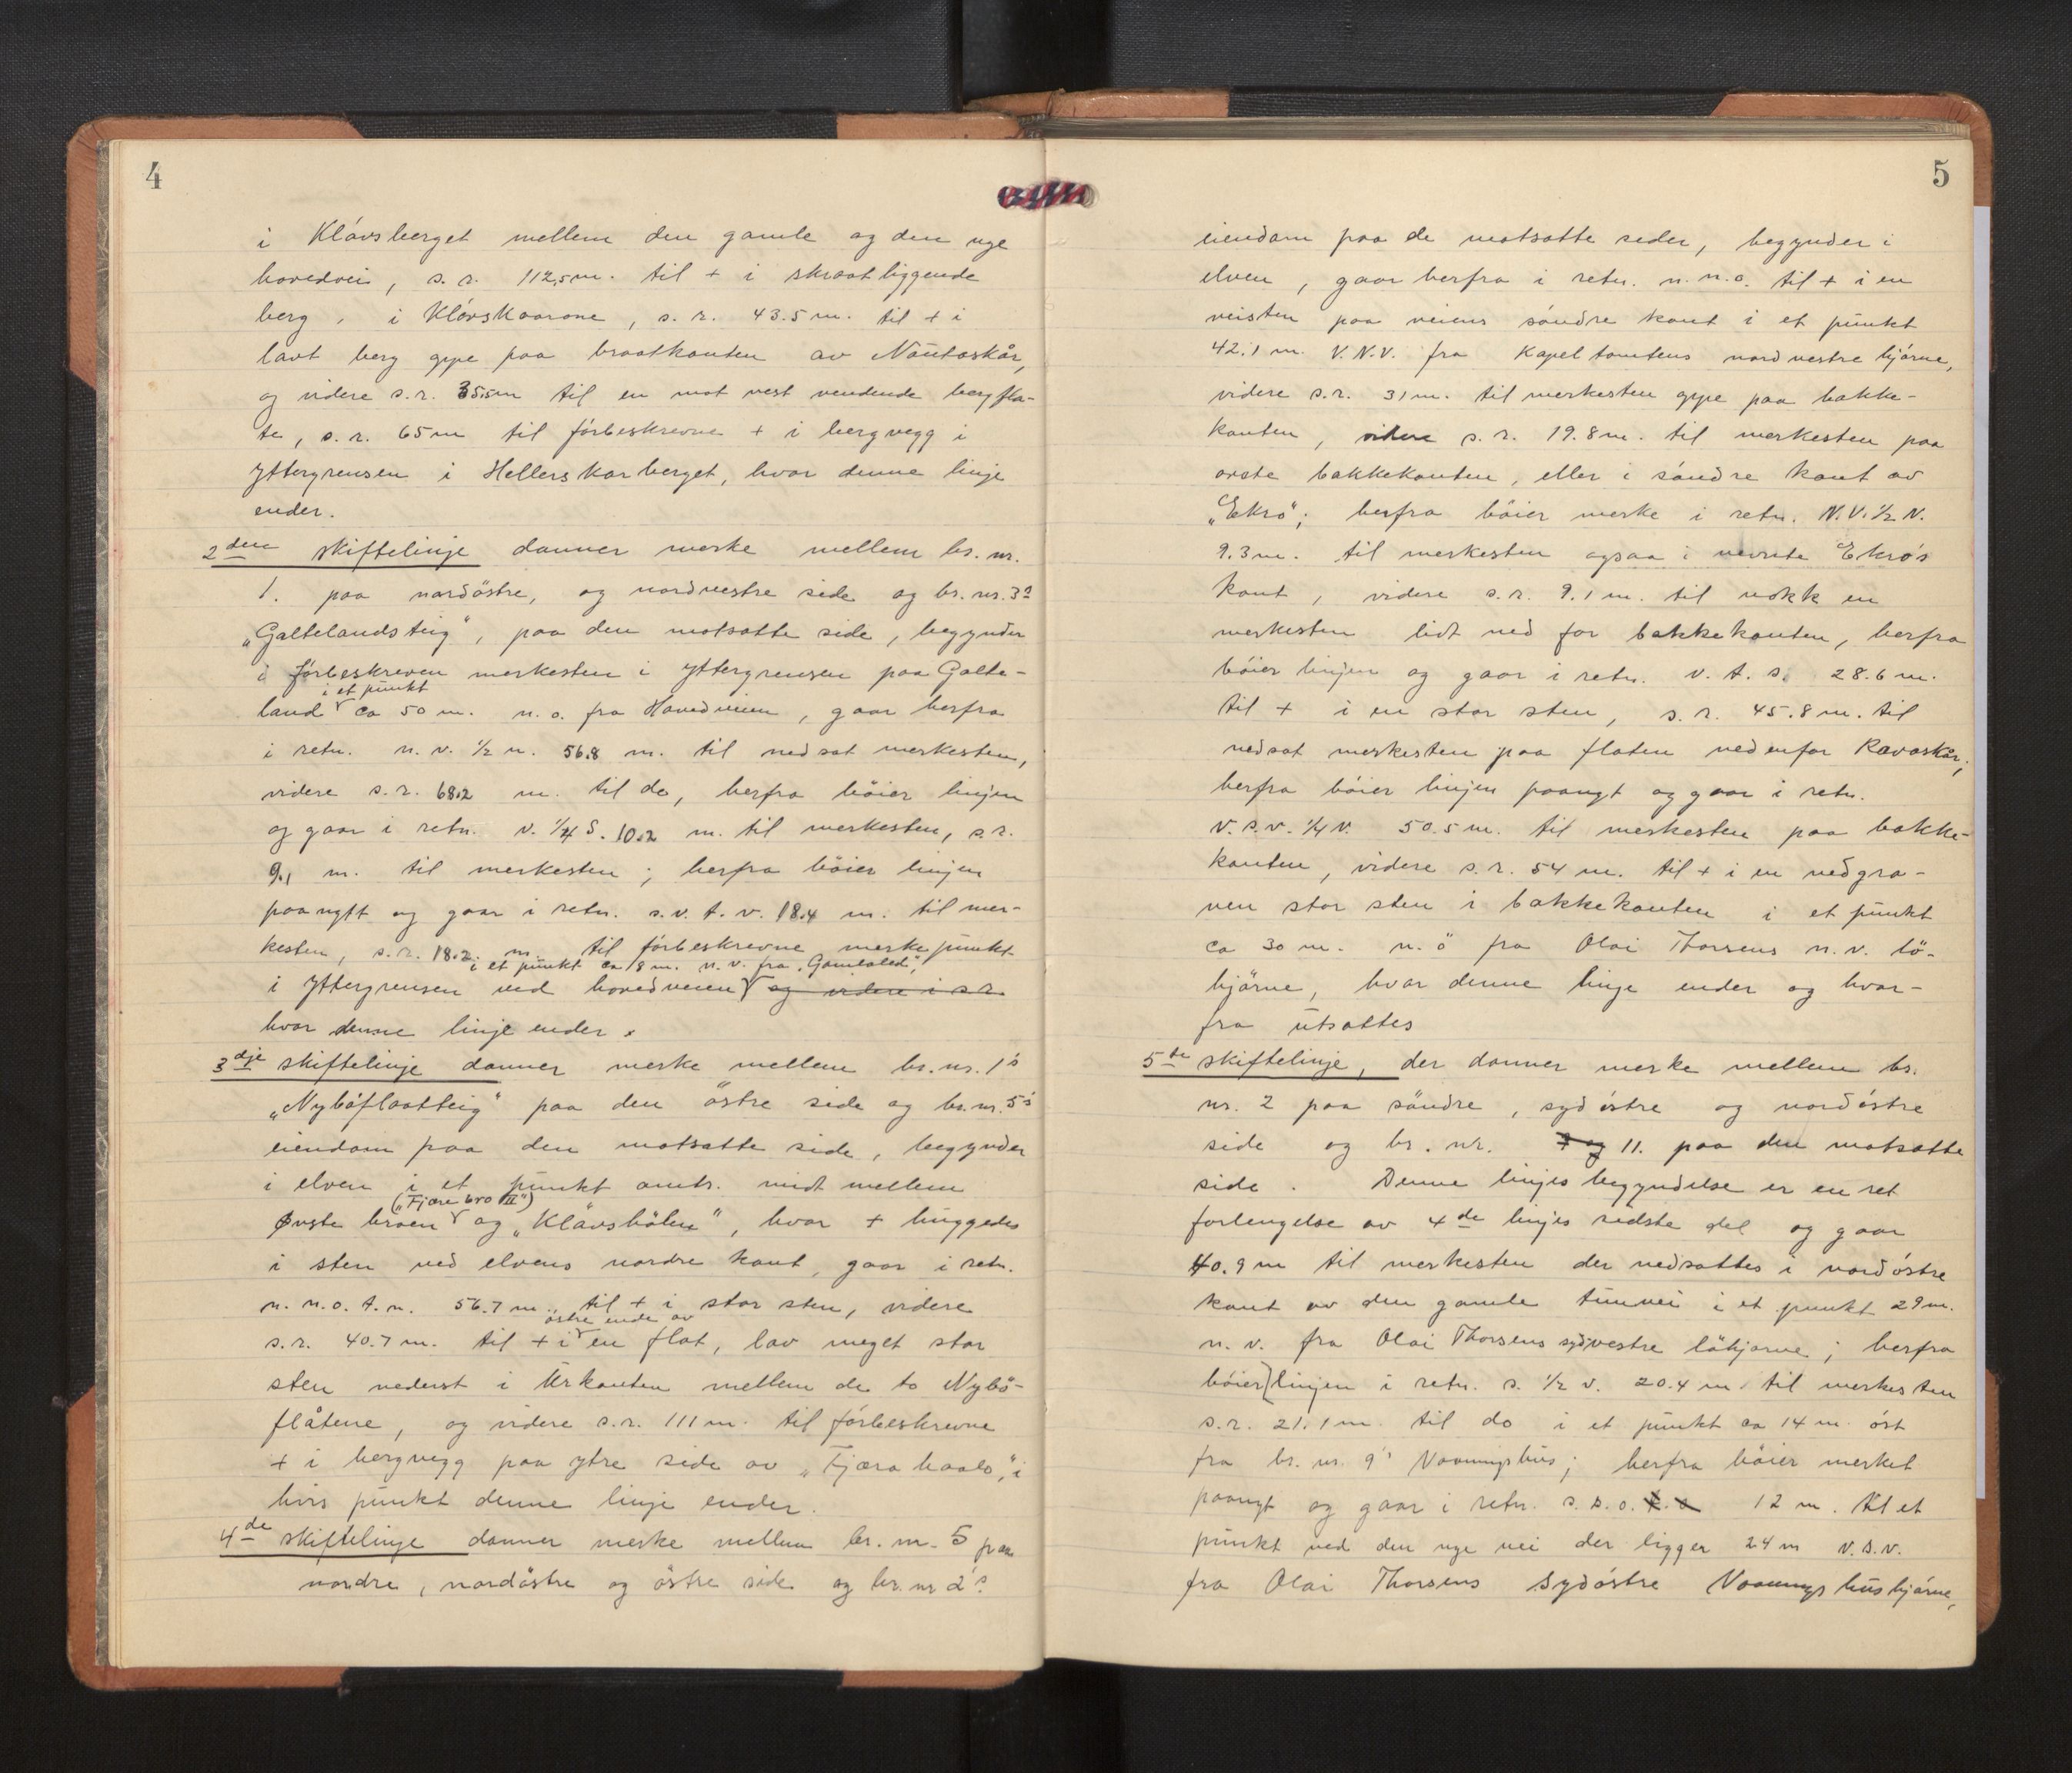 4
i Klóvsberget mellem den gamle og den nye
hovedvei, s. r. 112,5 m. til + i skraatliggende
berg, i Klóvskaarane, s. r. 43.5 m. til + i
lavt berg øype paa braatkanten av Nautaskår,
og videre s. r. 35.5m til en mot vest vendende bergfla-
te, s. r. 65 m til fórbeskrevne + i bergvegg i
Yttergrensen i Hellerskarberget, hvor denne linje
ender.
2den skiftelinje danner merke mellem br. nr.
1. paa nordöstre, og nordvestre side og br. nr. 3s
„Galtelandsteig", paa den motsatte side, begynder
i fórbeskreven merkesten i Yttergrensen paa Galte-
i et punkt
land ca 50 m. n. o. fra Hovedveien, gaar herfra
i retn. n. v. ½ n. 56.8 m. til nedsat merkesten,
videre s. r. 68.2 m. til do, herfra böier linjen
og gaar i retn. v. ¼ S. 10.2 m. til merkesten, s. r.
9.1 m. til merkesten; herfra böier linjen
paanytt og gaar i retn. s. v. t. v. 18.4 m. til mer-
kesten, s. r. 18.2 m. til fórbeskrevne merkepunkt
i et punkt ca 8 m. n. v. fra „Gamlaled",
i Yttergrensen ved hovedveien og videre i s. r.
hvor denne linje ender.
3dje skiftelinje danner merke mellem br. nr. 1's
„Nybóflaatteig" paa den östre side og br. nr. 5's
eiendom paa den motsatte side, begynder
i elven i et punkt omtr. midt mellem
(„Fjære bro II")
Øvste broen og „Klåvshölen", hvor + huggedes
i sten ved elvens nordre kant, gaar i retn.
n. n. o. t. n. 56.7 m. til + i stor sten, videre
östre ende av
s. r. 40.7 m. til + i en flat, lav meget stor
sten nederst i Urkanten mellem de to Nybö-
flåtene, og videre s. r. 111 m. til fórbeskrevne
+ i bergvegg paa ytre side av „Fjæra haals", i
hvis punkt denne linje ender.
4de skiftelinje danner merke mellem br. nr. 5 paa
nordre, nordöstre og östre side og br. nr 2's
5
eiendom paa de motsatte sider, begynder i
elven, gaar herfra i retn. n. n. o. til + i en
veisten paa veiens söndre kant i et punkt
42.1 m. V. N. V. fra Kapeltomtens nordvestre hjórne,
videre s. r. 31 m. til merkesten øype paa bakke-
kanten, videre s. r. 19.8 m. til merkesten paa
øvste bakkekanten, eller i söndre kant av
„Ekro"; herfra böier merke i retn. N. V. ½ N.
9.3 m. til merkesten ogsaa i nevnte Ekro's
kant, videre s. r. 9.1 m. til nokk en
merkesten lidt ned for bakkekanten, herfra
böier linjen og gaar i retn. v. t. s. 28.6 m.
til + i en stor sten, s. r. 45.8 m. til
nedsat merkesten paa flaten nedenfor Ravaskår;
herfra böier linjen paanyt og gaar i retn.
V. s. v. ¼ v. 50.5 m. til merkesten paa bakke-
kanten, videre s. r. 54 m. til + i en nedgra-
ven stor sten i bakkekanten i et punkt
ca 30 m. n. ö fra Olai Thorsens n. v. lö-
hjörne, hvor denne linje ender og hvor-
fra utsattes
5te skiftelinje, der danner merke mellem br.
nr. 2 paa söndre, sydóstre og nordóstre
side og br. nr. 7 og 11. paa den motsatte
side. Denne linjes begyndelse er en ret
forlengelse av 4de linjes sidste del og gaar
40.9 m til merkesten der nedsattes i nordóstre
kant av den gamle tunvei i et punkt 29 m.
n. v. fra Olai Thorsens sydvestre löhjørne; herfra
böier linjen i retn. s. ½ v. 20.4 m til merkesten
s. r. 21.1 m. til do i et punkt ca 14 m óst
fra br. nr. 9's Vaaningshus; herfra böier merket
paanyt og gaar i retn. s. s. o. 12 m. til et
punkt ved den nye vei der ligger 24 m V. S. V.
fra Olai Thorsens Sydóstre Vaaningshushjórne,